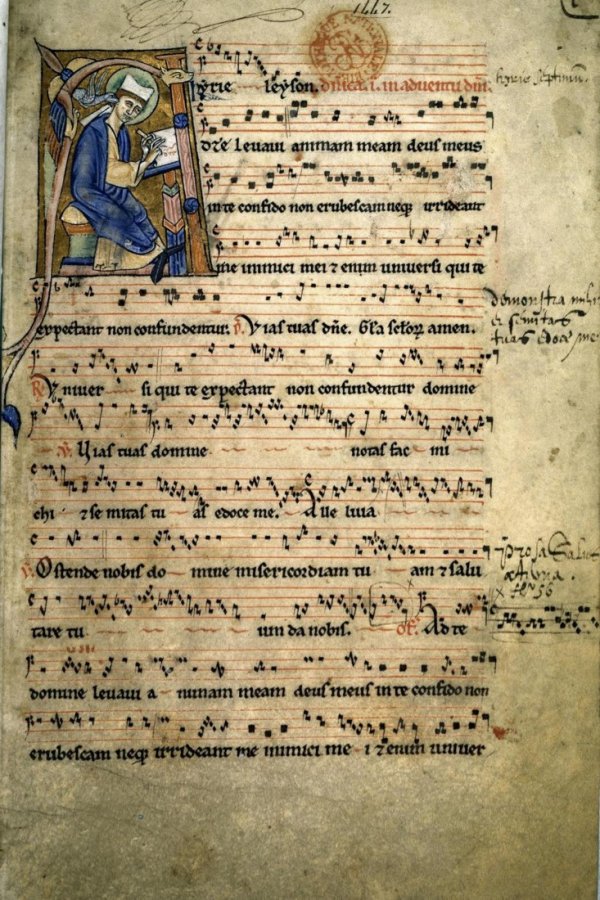 1447.
kyrie leyson. dnica. i. in adventu dni.
d te levavi animam meam deus meus
in te confido non erubescam neq irrideant
me inimici mei & enim universi qui te
expectant non confundentur. Vias tuas dne. Gla seloR amen.
Vniver si qui te expectant non confundentur domine
V. Vias tuas domine notas fac mi
chi & semitas tu as edoce me. Alleluia
V. Ostende nobis do mine misericordiam tu am & salu
tare tu um da nobis. Of. Ad te
domine levavi a nimam meam deus meus in te confido non
erubescam neq irrideant me inimici me i & enim univer
demonstra mihi
et semitas
tuas edoce me
Prosa Salus
fo 56